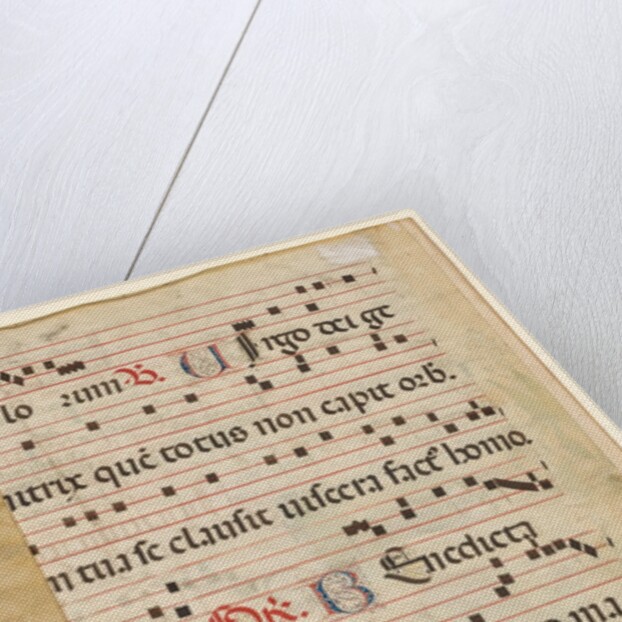 lo R. V Virgo dei ge
nitrix quē totus non capit orb.
in tua se clausit uiscera fact' homo.
B Enedicta